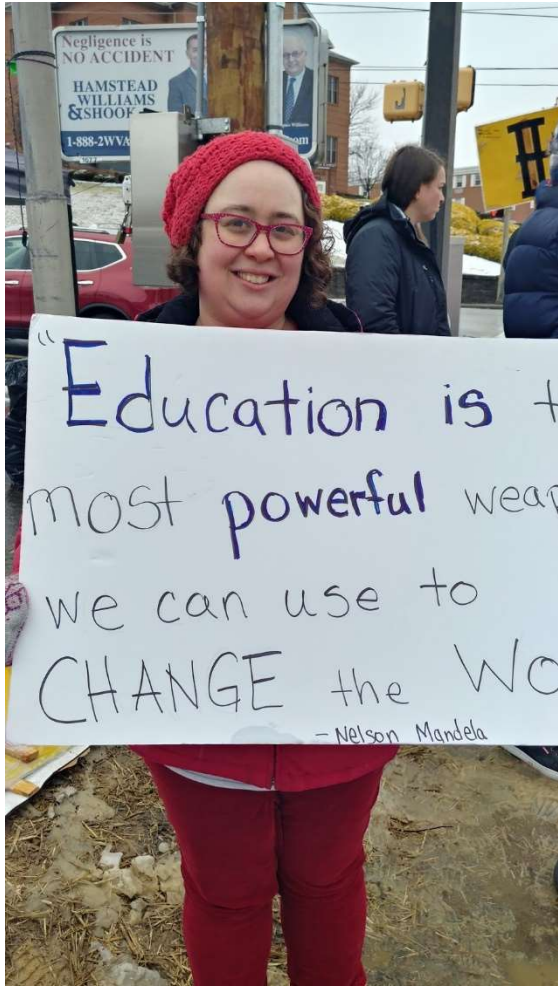 Negligence is
NO ACCIDENT
HAMSTEAD
WILLIAMS
&SHOOK
1-888-2WVA
.com
"Education is t
most powerful weap
we can use to
CHANGE the WO
-Nelson Mandela